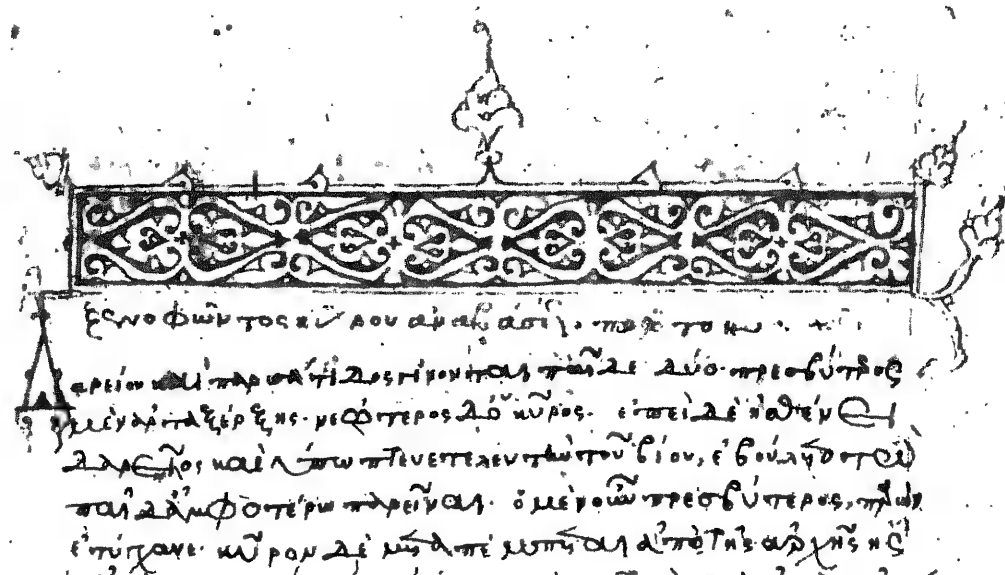 ξενοφῶντος κύρου ἀναβάσε
Δαρείου καὶ παρισάτιδος γίγνονται παῖδε δύο· πρεσβύτερος
μὲν ἀρταξέρξης· νεώτερος δὲ κῦρος· ἐπεὶ δὲ ἠσθένει
δαρεῖος καὶ ὑπώπτευε τελευτὴν τοῦ βίου, ἐβούλετο τὼ
παῖδε ἀμφοτέρω παρεῖναι. ὁ μὲν οὖν πρεσβύτερος, παρὼν
ἐτύγχανε· κῦρον δὲ μεταπέμπεται ἀπὸ τῆς ἀρχῆς ἧς